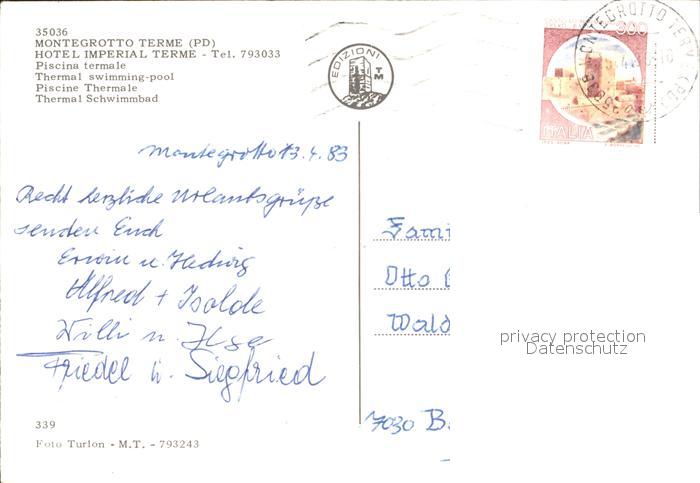 35036
MONTEGROTTO TERME (PD)
HOTEL IMPERIAL TERME - Tel. 793033
Piscina termale
Thermal swimming-pool
Piscine Thermale
Thermal Schwimmbad
EDIZIONI
TM
300
ITALIA
MONTEGROTTO TERME (PD)
35036
Montegrotto 13.4.83
Recht herzliche Urlaubsgrüße
senden Euch
Erwin u. Hedwig
Alfred + Isolde
Willi u. Ilse
Friedel u. Siegfried
Fami
Otto
Wald
7030 B
privacy protection
Datenschutz
339
Foto Turlon - M.T. - 793243